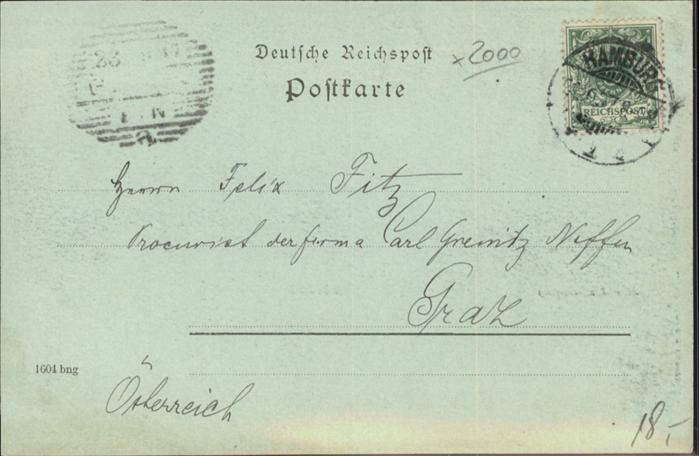 Deutsche Reichspost
Postkarte
x2000
HAMBURG
REICHSPOST
Herrn Felix Fitz
Procurist der firma Carl Greinitz Neffen
Graz
1604 bng
Österreich
18,-